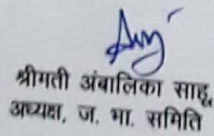 श्रीमती अंबालिका साहू,
अध्यक्ष, ज. भा. समिति